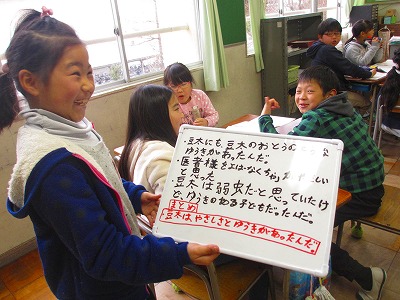 ・豆木、豆木のおとうの
ゆうきがあったんだ。
・医者様を
と思った
・豆木は弱虫だと思っていたけ
どゆうきのある子どもだったんだ。
まとめ
豆木はやさしさとゆうきがあったんだ。